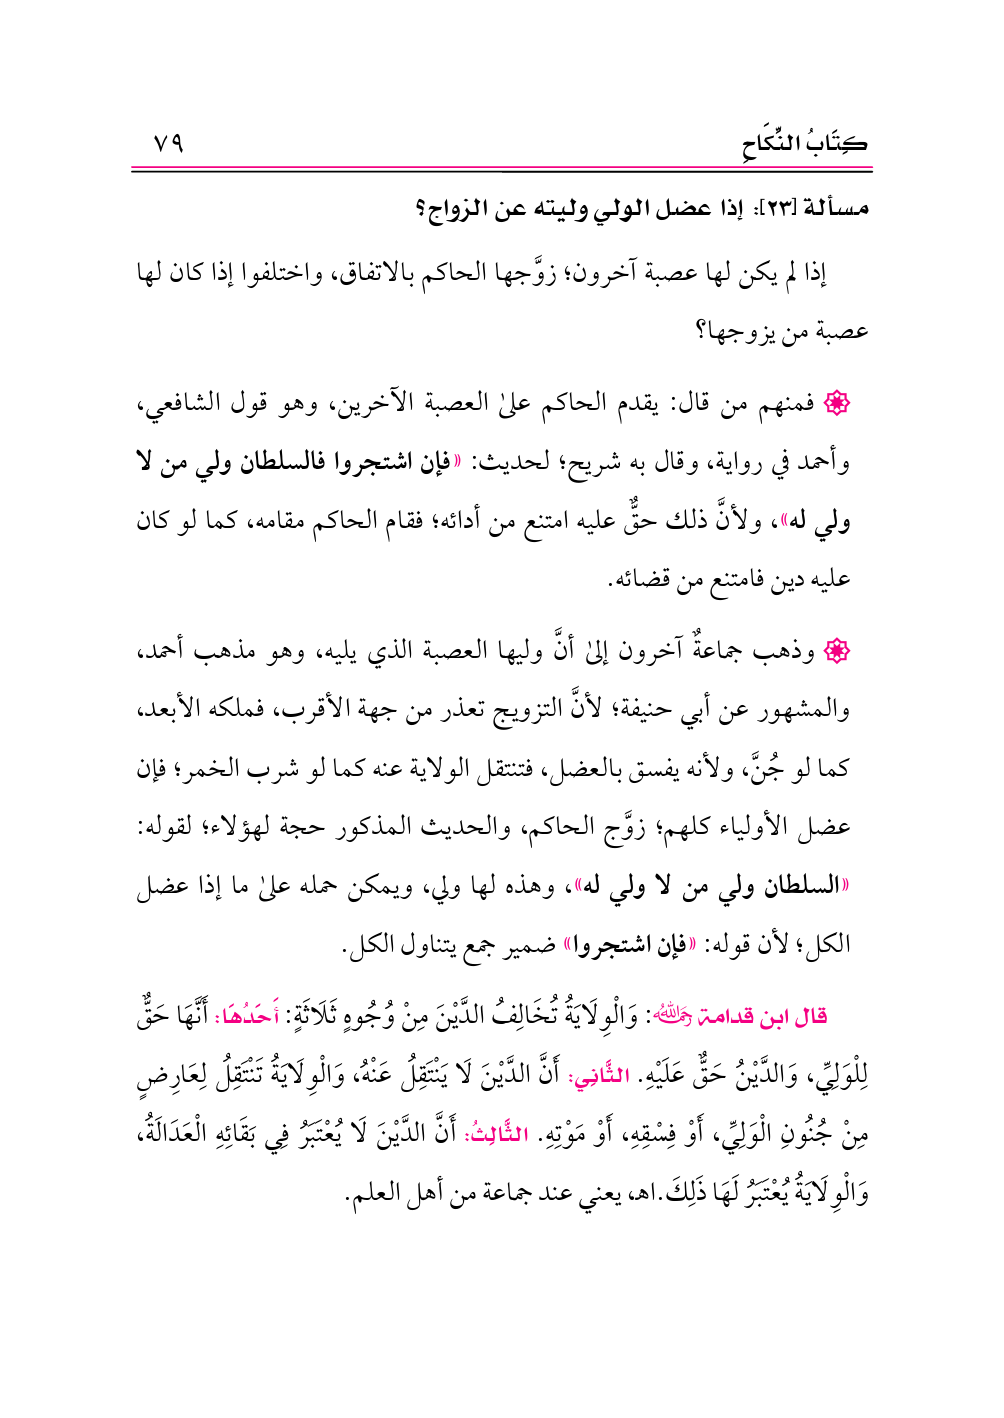 كِتَابُ النِّكَاحِ ٧٩
مسألة [٢٣]: إذا عضل الولي وليته عن الزواج؟
إذا لم يكن لها عصبة آخرون؛ زوَّجها الحاكم بالاتفاق، واختلفوا إذا كان لها
عصبة من يزوجها؟
۞ فمنهم من قال: يقدم الحاكم علىٰ العصبة الآخرين، وهو قول الشافعي،
وأحمد في رواية، وقال به شريح؛ لحديث: «فإن اشتجروا فالسلطان ولي من لا
ولي له»، ولأنَّ ذلك حقٌّ عليه امتنع من أدائه؛ فقام الحاكم مقامه، كما لو كان
عليه دين فامتنع من قضائه.
۞ وذهب جماعةٌ آخرون إلىٰ أنَّ وليها العصبة الذي يليه، وهو مذهب أحمد،
والمشهور عن أبي حنيفة؛ لأنَّ التزويج تعذر من جهة الأقرب، فملكه الأبعد،
كما لو جُنَّ، ولأنه يفسق بالعضل، فتنتقل الولاية عنه كما لو شرب الخمر؛ فإن
عضل الأولياء كلهم؛ زوَّج الحاكم، والحديث المذكور حجة لهؤلاء؛ لقوله:
«السلطان ولي من لا ولي له»، وهذه لها ولي، ويمكن حمله علىٰ ما إذا عضل
الكل؛ لأن قوله: «فإن اشتجروا» ضمير جمع يتناول الكل.
قال ابن قدامة رحمه الله: وَالْوِلَايَةُ تُخَالِفُ الدَّيْنَ مِنْ وُجُوهٍ ثَلَاثَةٍ: أَحَدُهَا: أَنَّهَا حَقٌّ
لِلْوَلِيِّ، وَالدَّيْنُ حَقٌّ عَلَيْهِ. الثَّانِي: أَنَّ الدَّيْنَ لَا يَنْتَقِلُ عَنْهُ، وَالْوِلَايَةُ تَنْتَقِلُ لِعَارِضٍ
مِنْ جُنُونِ الْوَلِيِّ، أَوْ فِسْقِهِ، أَوْ مَوْتِهِ. الثَّالِثُ: أَنَّ الدَّيْنَ لَا يُعْتَبَرُ فِي بَقَائِهِ الْعَدَالَةُ،
وَالْوِلَايَةُ يُعْتَبَرُ لَهَا ذَلِكَ.اهـ، يعني عند جماعة من أهل العلم.